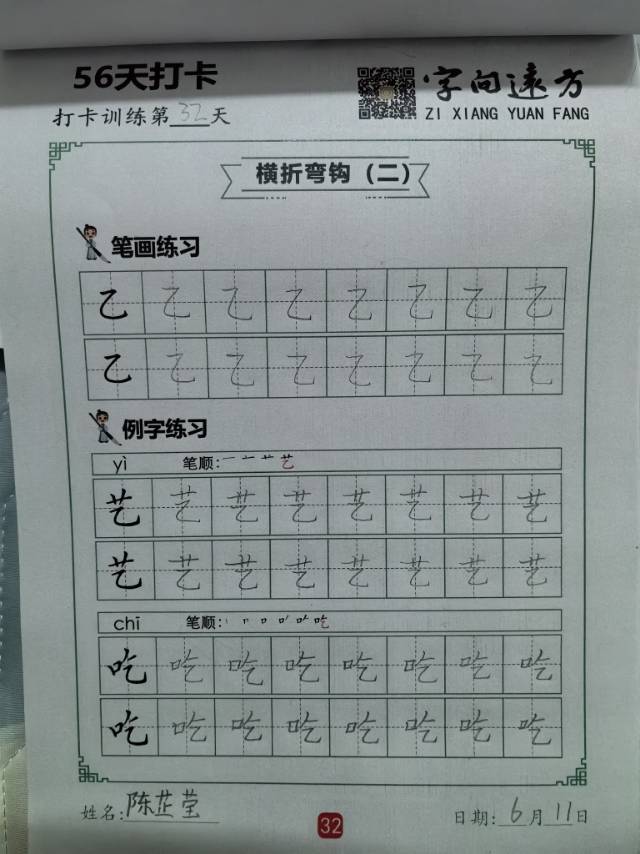 56天打卡
字向遠方
打卡训练第32天
ZI XIANG YUAN FANG
横折弯钩（二）
笔画练习
乙 乙 乙 乙 乙 乙 乙 乙
乙 乙 乙 乙 乙 乙 乙 乙
例字练习
yì 笔顺:一 艹 艺
艺 艺 艺 艺 艺 艺 艺 艺
艺 艺 艺 艺 艺 艺 艺 艺
chī 笔顺: 吃
吃 吃 吃 吃 吃 吃 吃 吃
吃 吃 吃 吃 吃 吃 吃 吃
姓名:陈芷莹
32
日期:6月11日